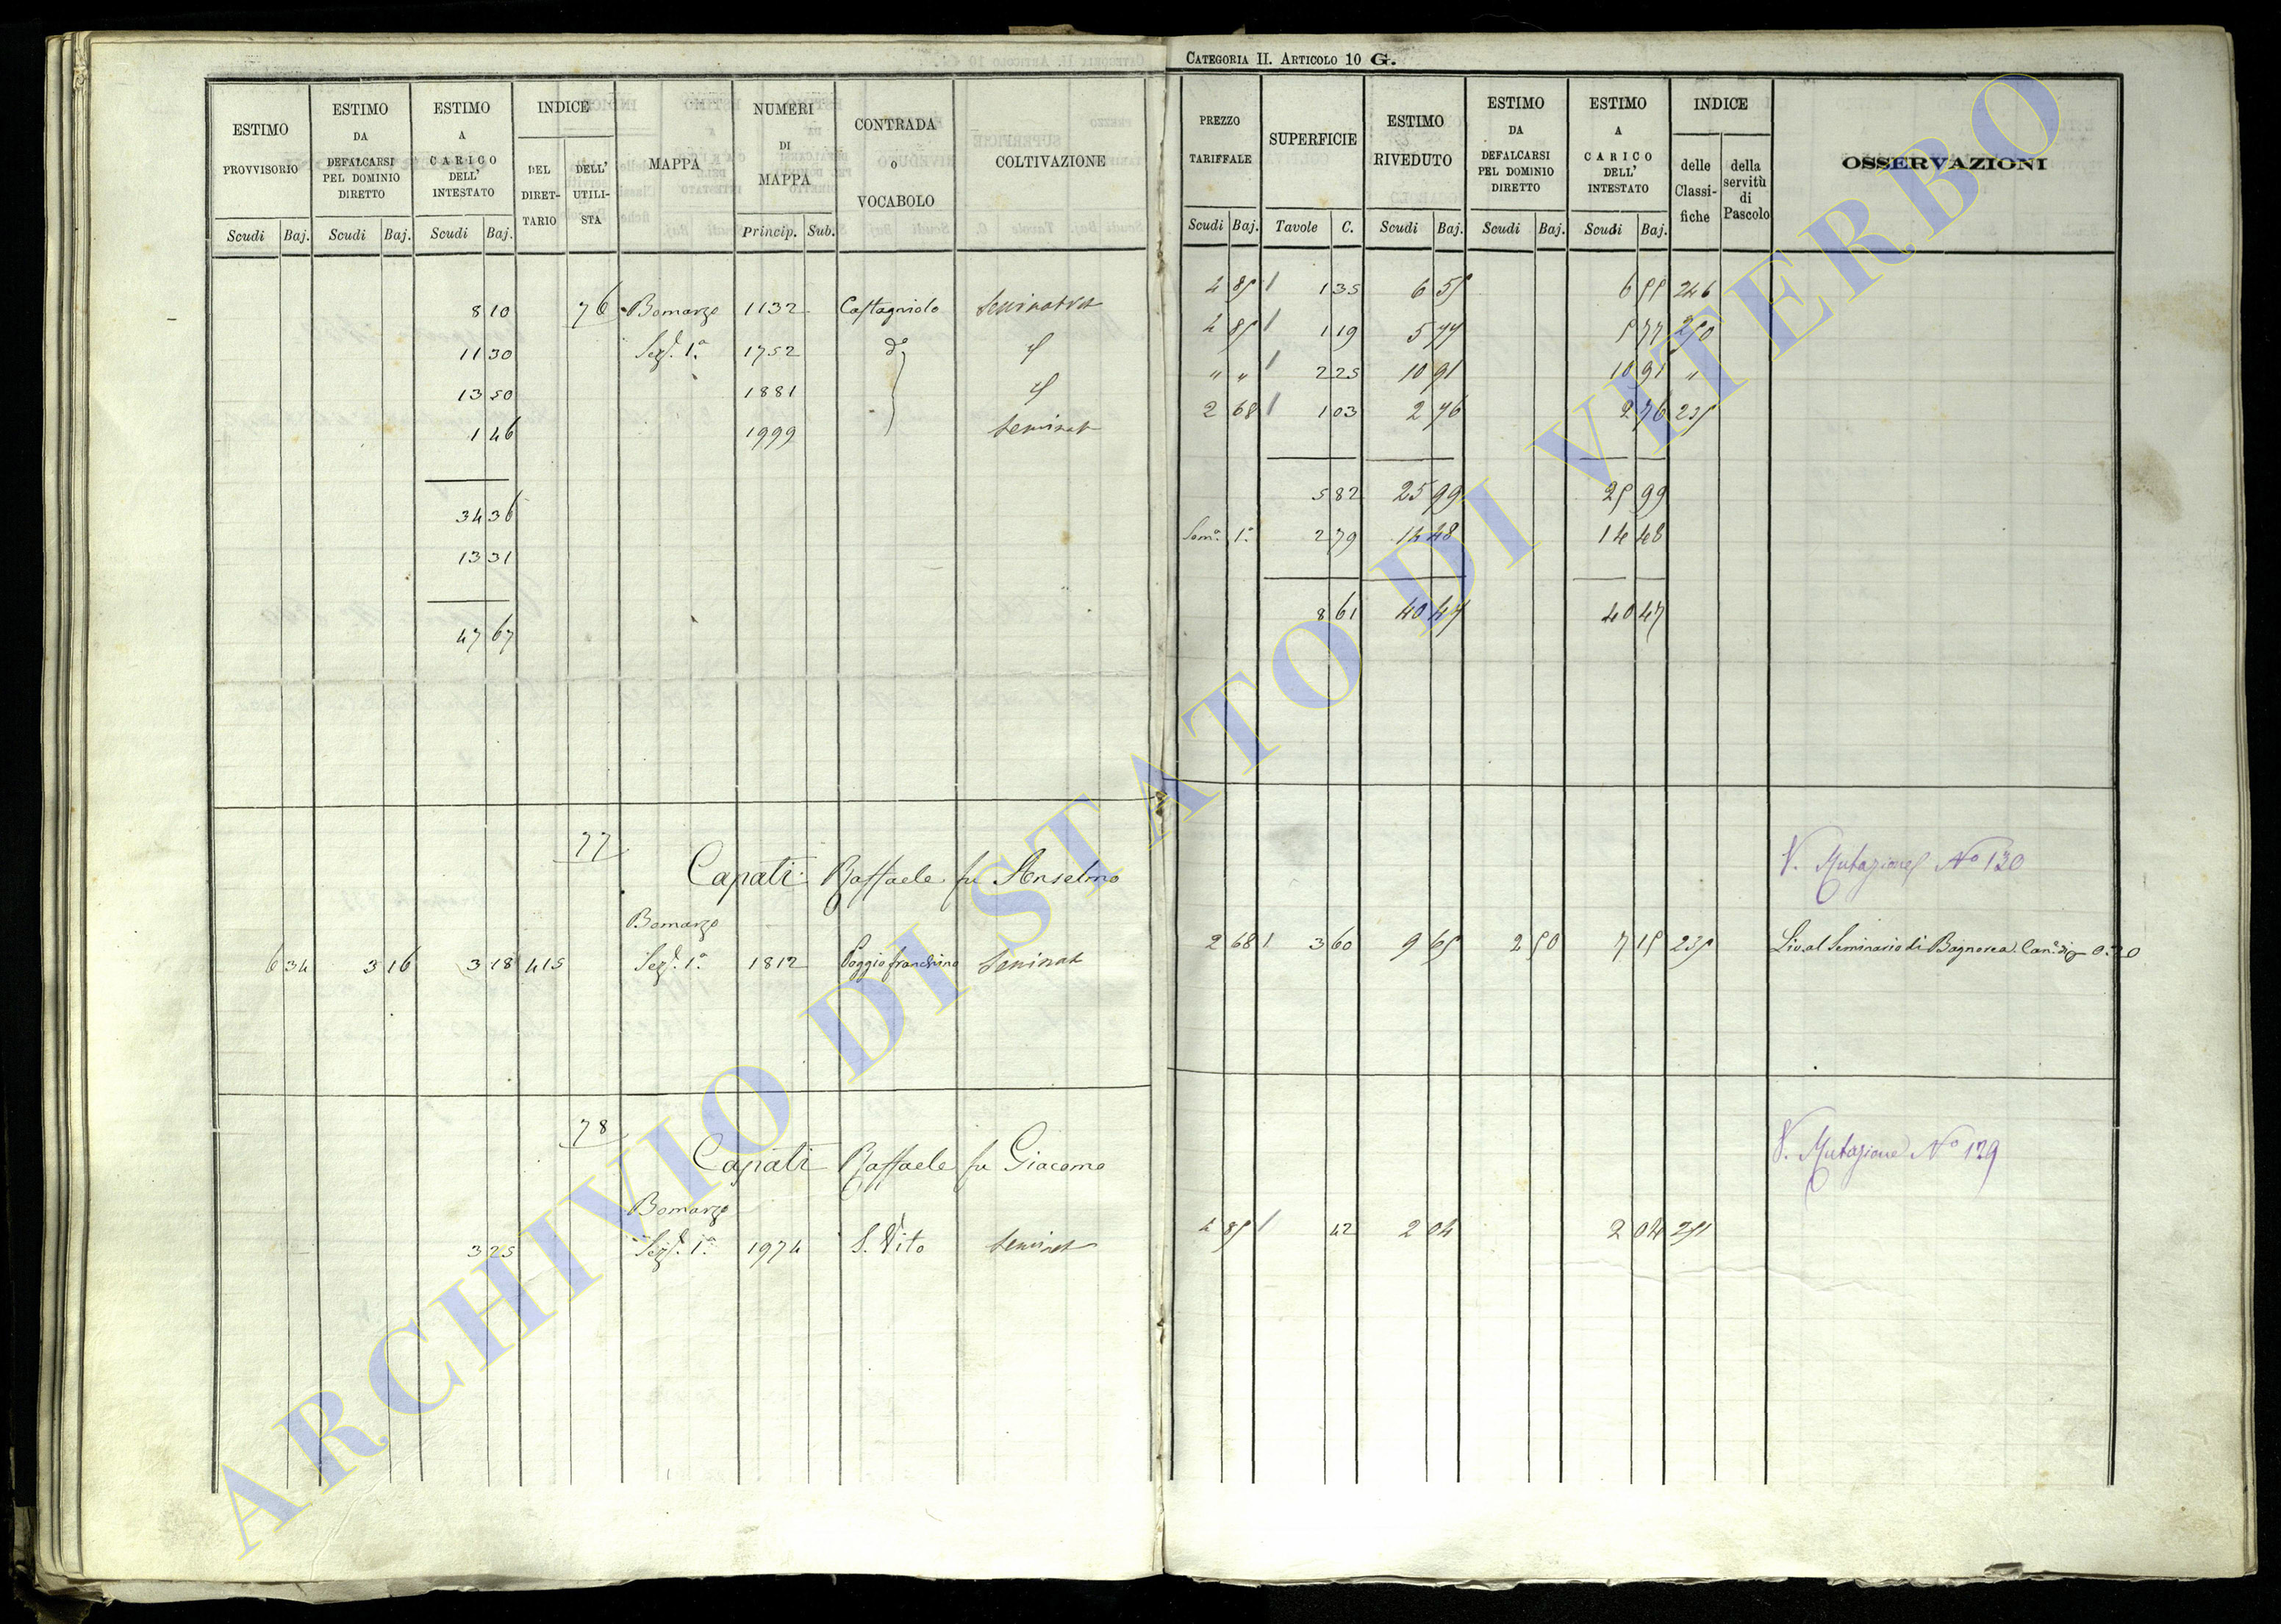 CATEGORIA II. ARTICOLO 10 G.
ESTIMO PROVVISORIO
ESTIMO DA DEFALCARSI PEL DOMINIO DIRETTO
ESTIMO A CARICO DELL' INTESTATO
INDICE
DEL DIRETTARIO
DELL' UTILISTA
MAPPA
NUMERI DI MAPPA
CONTRADA O VOCABOLO
COLTIVAZIONE
Scudi Baj. Scudi Baj. Scudi Baj. Princip. Sub.
PREZZO TARIFFALE
SUPERFICIE
ESTIMO RIVEDUTO
ESTIMO DA DEFALCARSI PEL DOMINIO DIRETTO
ESTIMO A CARICO DELL' INTESTATO
INDICE
delle Classifiche
della servitù di Pascolo
OSSERVAZIONI
Scudi Baj. Tavole C. Scudi Baj. Scudi Baj. Scudi Baj.
8 10 76 Bomarzo 1132 Castagnolo
11 30 Sez.e 1.a 1752 d.o
13 50 1881
1 46 1999 Seminat
34 36
13 31
47 67
4 85 1 1 35 6 55 6 55 246
4 85 1 1 19 5 77 5 77 250
" " 1 2 25 10 91 10 91 "
2 68 1 1 03 2 76 2 76 235
5 82 25 99 25 99
Som.a 1.a 2 79 14 48 14 48
8 61 40 47 40 47
77
Capati Raffaele fu Anselmo
Bomarzo
6 34 3 16 3 18 415 Sez.e 1.a 1812 Poggio franchino Seminat
V. Mutazione N.o 130
2 68 1 3 60 9 65 2 50 7 15 235 Liv. al Seminario di Bagnorea
78
Capati Raffaele fu Giacomo
Bomarzo
3 25 Sez.e 1.a 1974 S. Vito Seminat
V. Mutazione N.o 129
4 85 1 42 2 04 2 04 251
ARCHIVIO DI STATO DI VITERBO